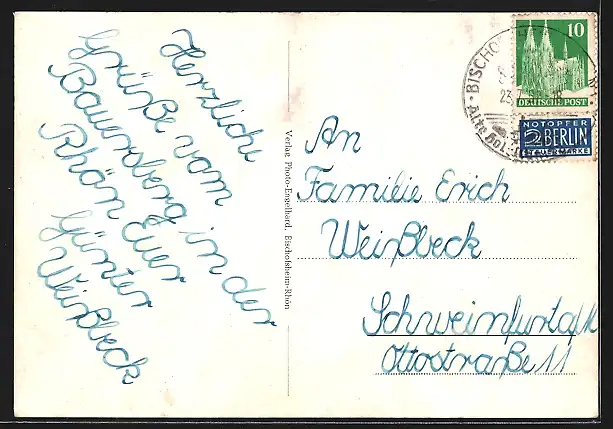 Herzliche
Grüße vom
Bauersberg in der
Rhön Euer
Günter
Weißbeck
Verlag Photo-Engelhard, Bischofsheim-Rhön
An
Familie Erich
Weißbeck
Schweinfurt a/M
Ottostraße 11
10
DEUTSCHE POST
NOTOPFER
2 BERLIN
STEUERMARKE
BISCHO
23.